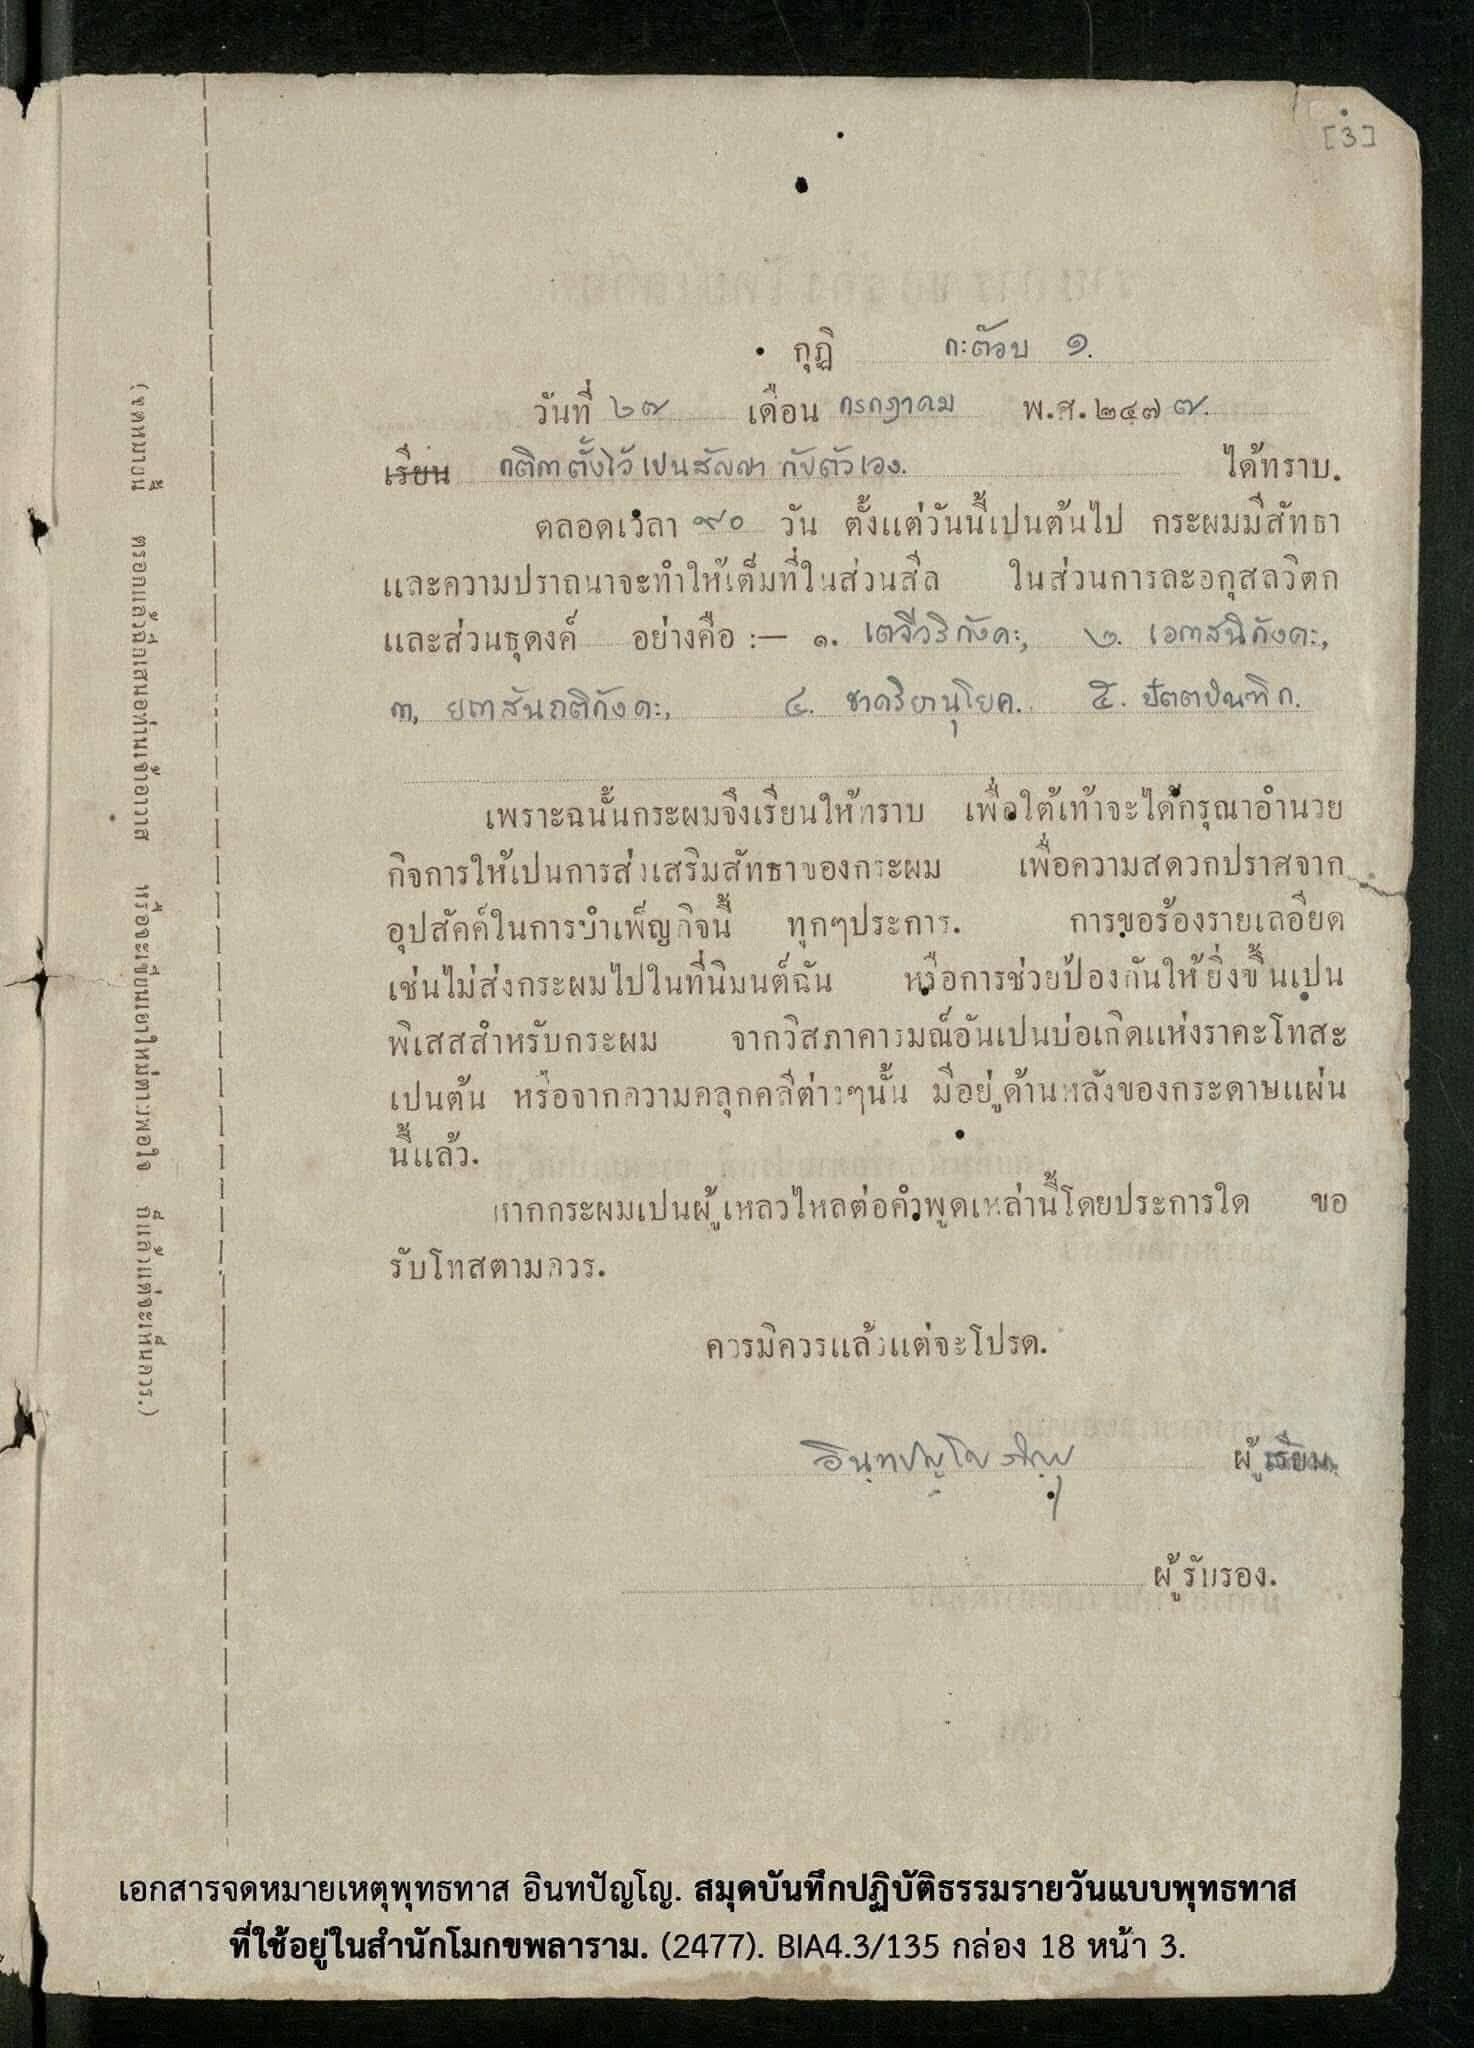 [3]
กุฏิ กะต๊อบ ๑.
วันที่ ๒๗ เดือน กรกฎาคม พ.ศ. ๒๔๗๗.
เรียน กติกาตั้งไว้เปนสัญญา กับตัวเอง. ได้ทราบ.
ตลอดเวลา ๙๐ วัน ตั้งแต่วันนี้เปนต้นไป กระผมมีสัทธา
และความปราถนาจะทำให้เต็มที่ในส่วนสีล ในส่วนการละอกุสลวิตก
และส่วนธุดงค์ อย่างคือ :— ๑. เตจีวริกังคะ, ๒. เอกาสนิกังคะ,
๓, ยถาสันถติกังคะ, ๔. ชาคริยานุโยค. ๕. ปัตตบัณฑิก.
เพราะฉนั้นกระผมจึงเรียนให้ทราบ เพื่อใต้เท้าจะได้กรุณาอำนวย
กิจการให้เปนการส่งเสริมสัทธาของกระผม เพื่อความสดวกปราศจาก
อุปสัคค์ในการบำเพ็ญกิจนี้ ทุกๆประการ. การขอร้องรายเลอียด
เช่นไม่ส่งกระผมไปในที่นิมนต์ฉัน หรือการช่วยป้องกันให้ยิ่งขึ้นเปน
พิเสสสำหรับกระผม จากวิสภาคารมณ์อันเปนบ่อเกิดแห่งราคะโทสะ
เปนต้น หรือจากความคลุกคลีต่างๆนั้น มีอยู่ด้านหลังของกระดาษแผ่น
นี้แล้ว.
หากกระผมเปนผู้เหลวไหลต่อคำพูดเหล่านี้โดยประการใด ขอ
รับโทสตามควร.
ควรมิควรแล้วแต่จะโปรด.
อินฺทปญฺโญ ภิกฺขุ ผู้เรียน.
ผู้รับรอง.
(จดหมายนี้ ตรอกแล้วฉีกเสนอท่านเจ้าอาวาส หรือจะเขียนเอาใหม่ตามพอใจ ก็แล้วแต่จะเห็นควร.)
เอกสารจดหมายเหตุพุทธทาส อินทปัญโญ. สมุดบันทึกปฏิบัติธรรมรายวันแบบพุทธทาส
ที่ใช้อยู่ในสำนักโมกขพลาราม. (2477). BIA4.3/135 กล่อง 18 หน้า 3.